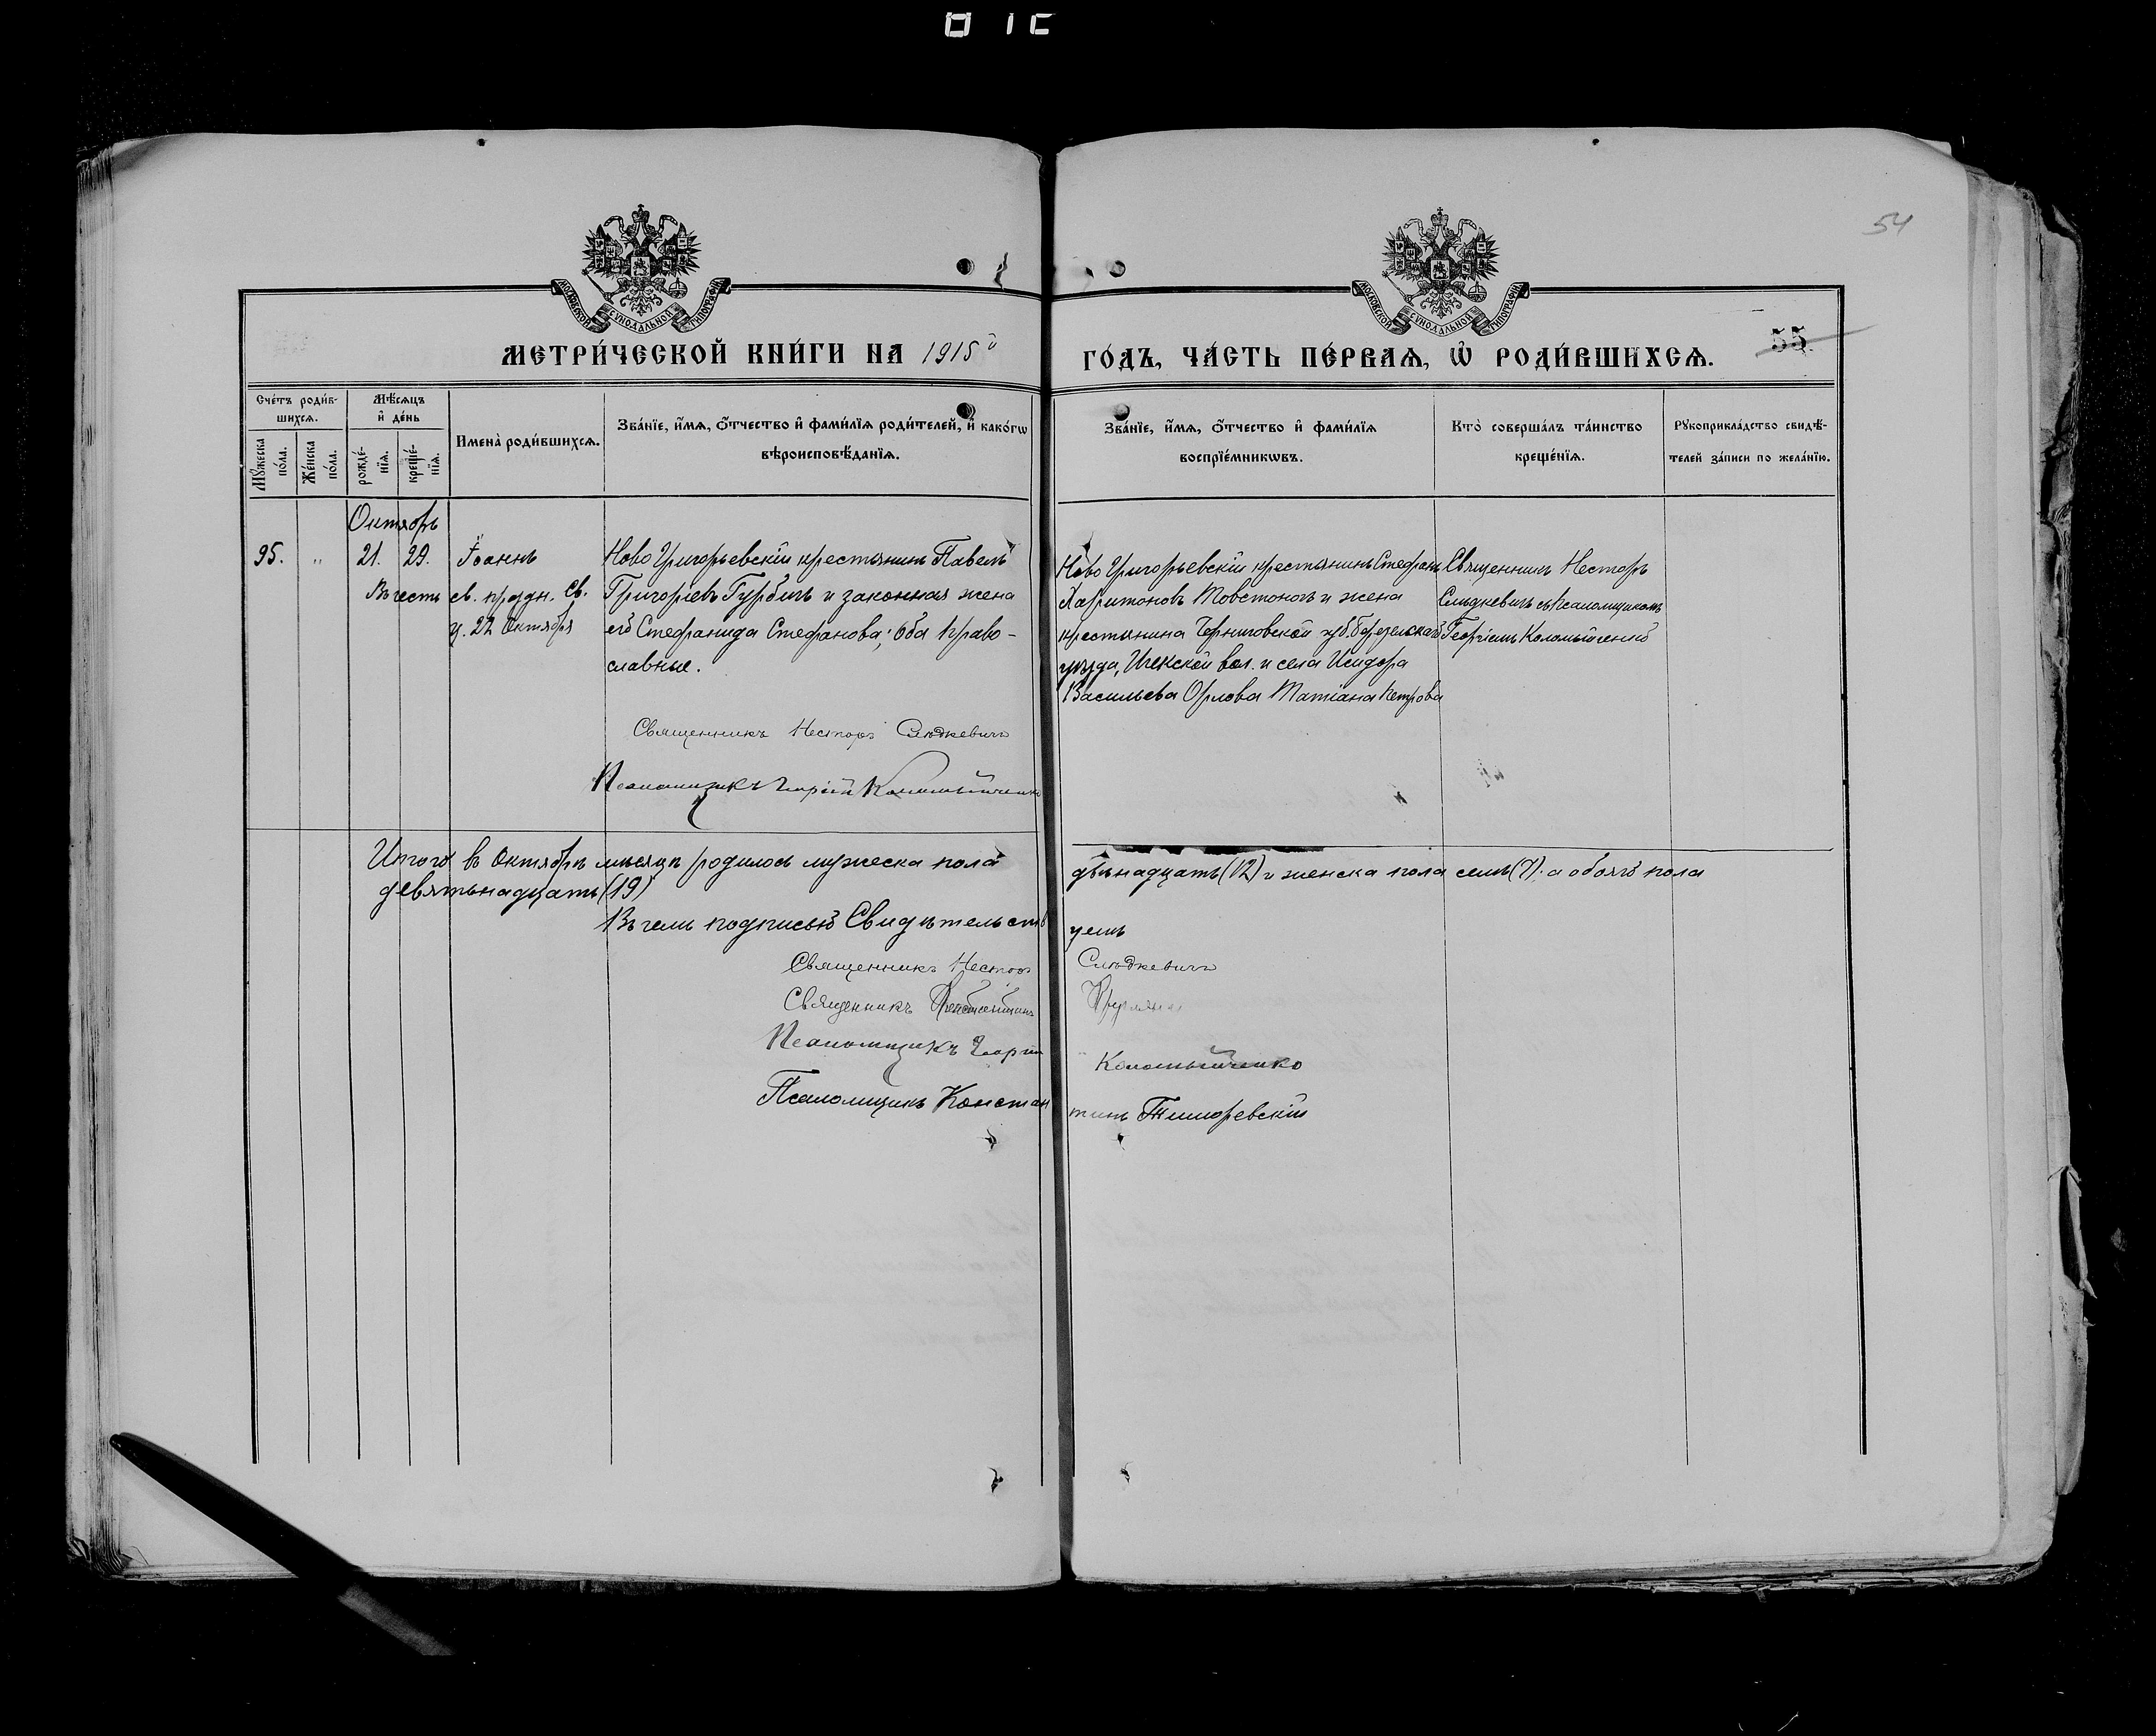 54
МОСКОВСКОЙ СѴНОДАЛЬНОЙ ТИПОГРАФІИ
МОСКОВСКОЙ СѴНОДАЛЬНОЙ ТИПОГРАФІИ
МЕТРИ́ЧЕСКОЙ КНИ́ГИ НА 1915й
ГО́ДЪ, ЧА́СТЬ ПЕ́РВАѦ, Ѡ҆ РОДИ́ВШИХСѦ.
55.
Сче́тъ роди́в-
шихсѧ.
Мꙋ́жеска по́ла.
Же́нска по́ла.
Мѣ́сѧцъ
и҆ де́нь
рожде́-нїѧ.
креще́-нїѧ.
И҆мена̀ роди́вшихсѧ.
Зва́нїе, и҆́мѧ, ѻ҆́тчество и҆ фами́лїѧ роди́телей, и҆ како́гѡ
вѣроисповѣ́данїѧ.
Зва́нїе, и҆́мѧ, ѻ҆́тчество и҆ фами́лїѧ
воспрїе́мникѡвъ.
Кто̀ соверша́лъ та́инство
креще́нїѧ.
Рꙋкоприкла́дство свидѣ́-
телей за́писи по жела́нїю.
Октябрь
95. „ 21. 29. Іоаннъ
Въ честь св. праздн. Св.
ц. 22 Октября
Ново Григорьевскій крестьянинъ Павелъ
Григоріевъ Гурбичъ и законная жена
его Стефанида Стефанова; оба право-
славные.
Священникъ Несторъ Слѣдкевичъ
Псаломщикъ Георгій Коломыйченко
Ново Григорьевскій крестьянинъ Стефанъ
Харитоновъ Товстоногъ и жена
крестьянина Черниговской губ. Борзенскаго
уѣзда, Ичекской вол. и села Исидора
Васильева Орлова Татіана Петрова
Священникъ Несторъ
Слѣдкевичъ съ псаломщикомъ
Георгіемъ Коломыйченко
Итого въ Октябрѣ мѣсяцѣ родилось мужеска пола двѣнадцать (12) и женска пола семь (7); а обоего пола
девятьнадцать (19)
Въ чемъ подписью Свидѣтельствуемъ
Священникъ Несторъ Слѣдкевичъ
Священникъ
Псаломщикъ Георгій Коломыйченко
Псаломщикъ Константинъ